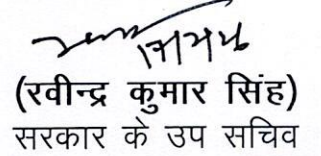 (रवीन्द्र कुमार सिंह)
सरकार के उप सचिव